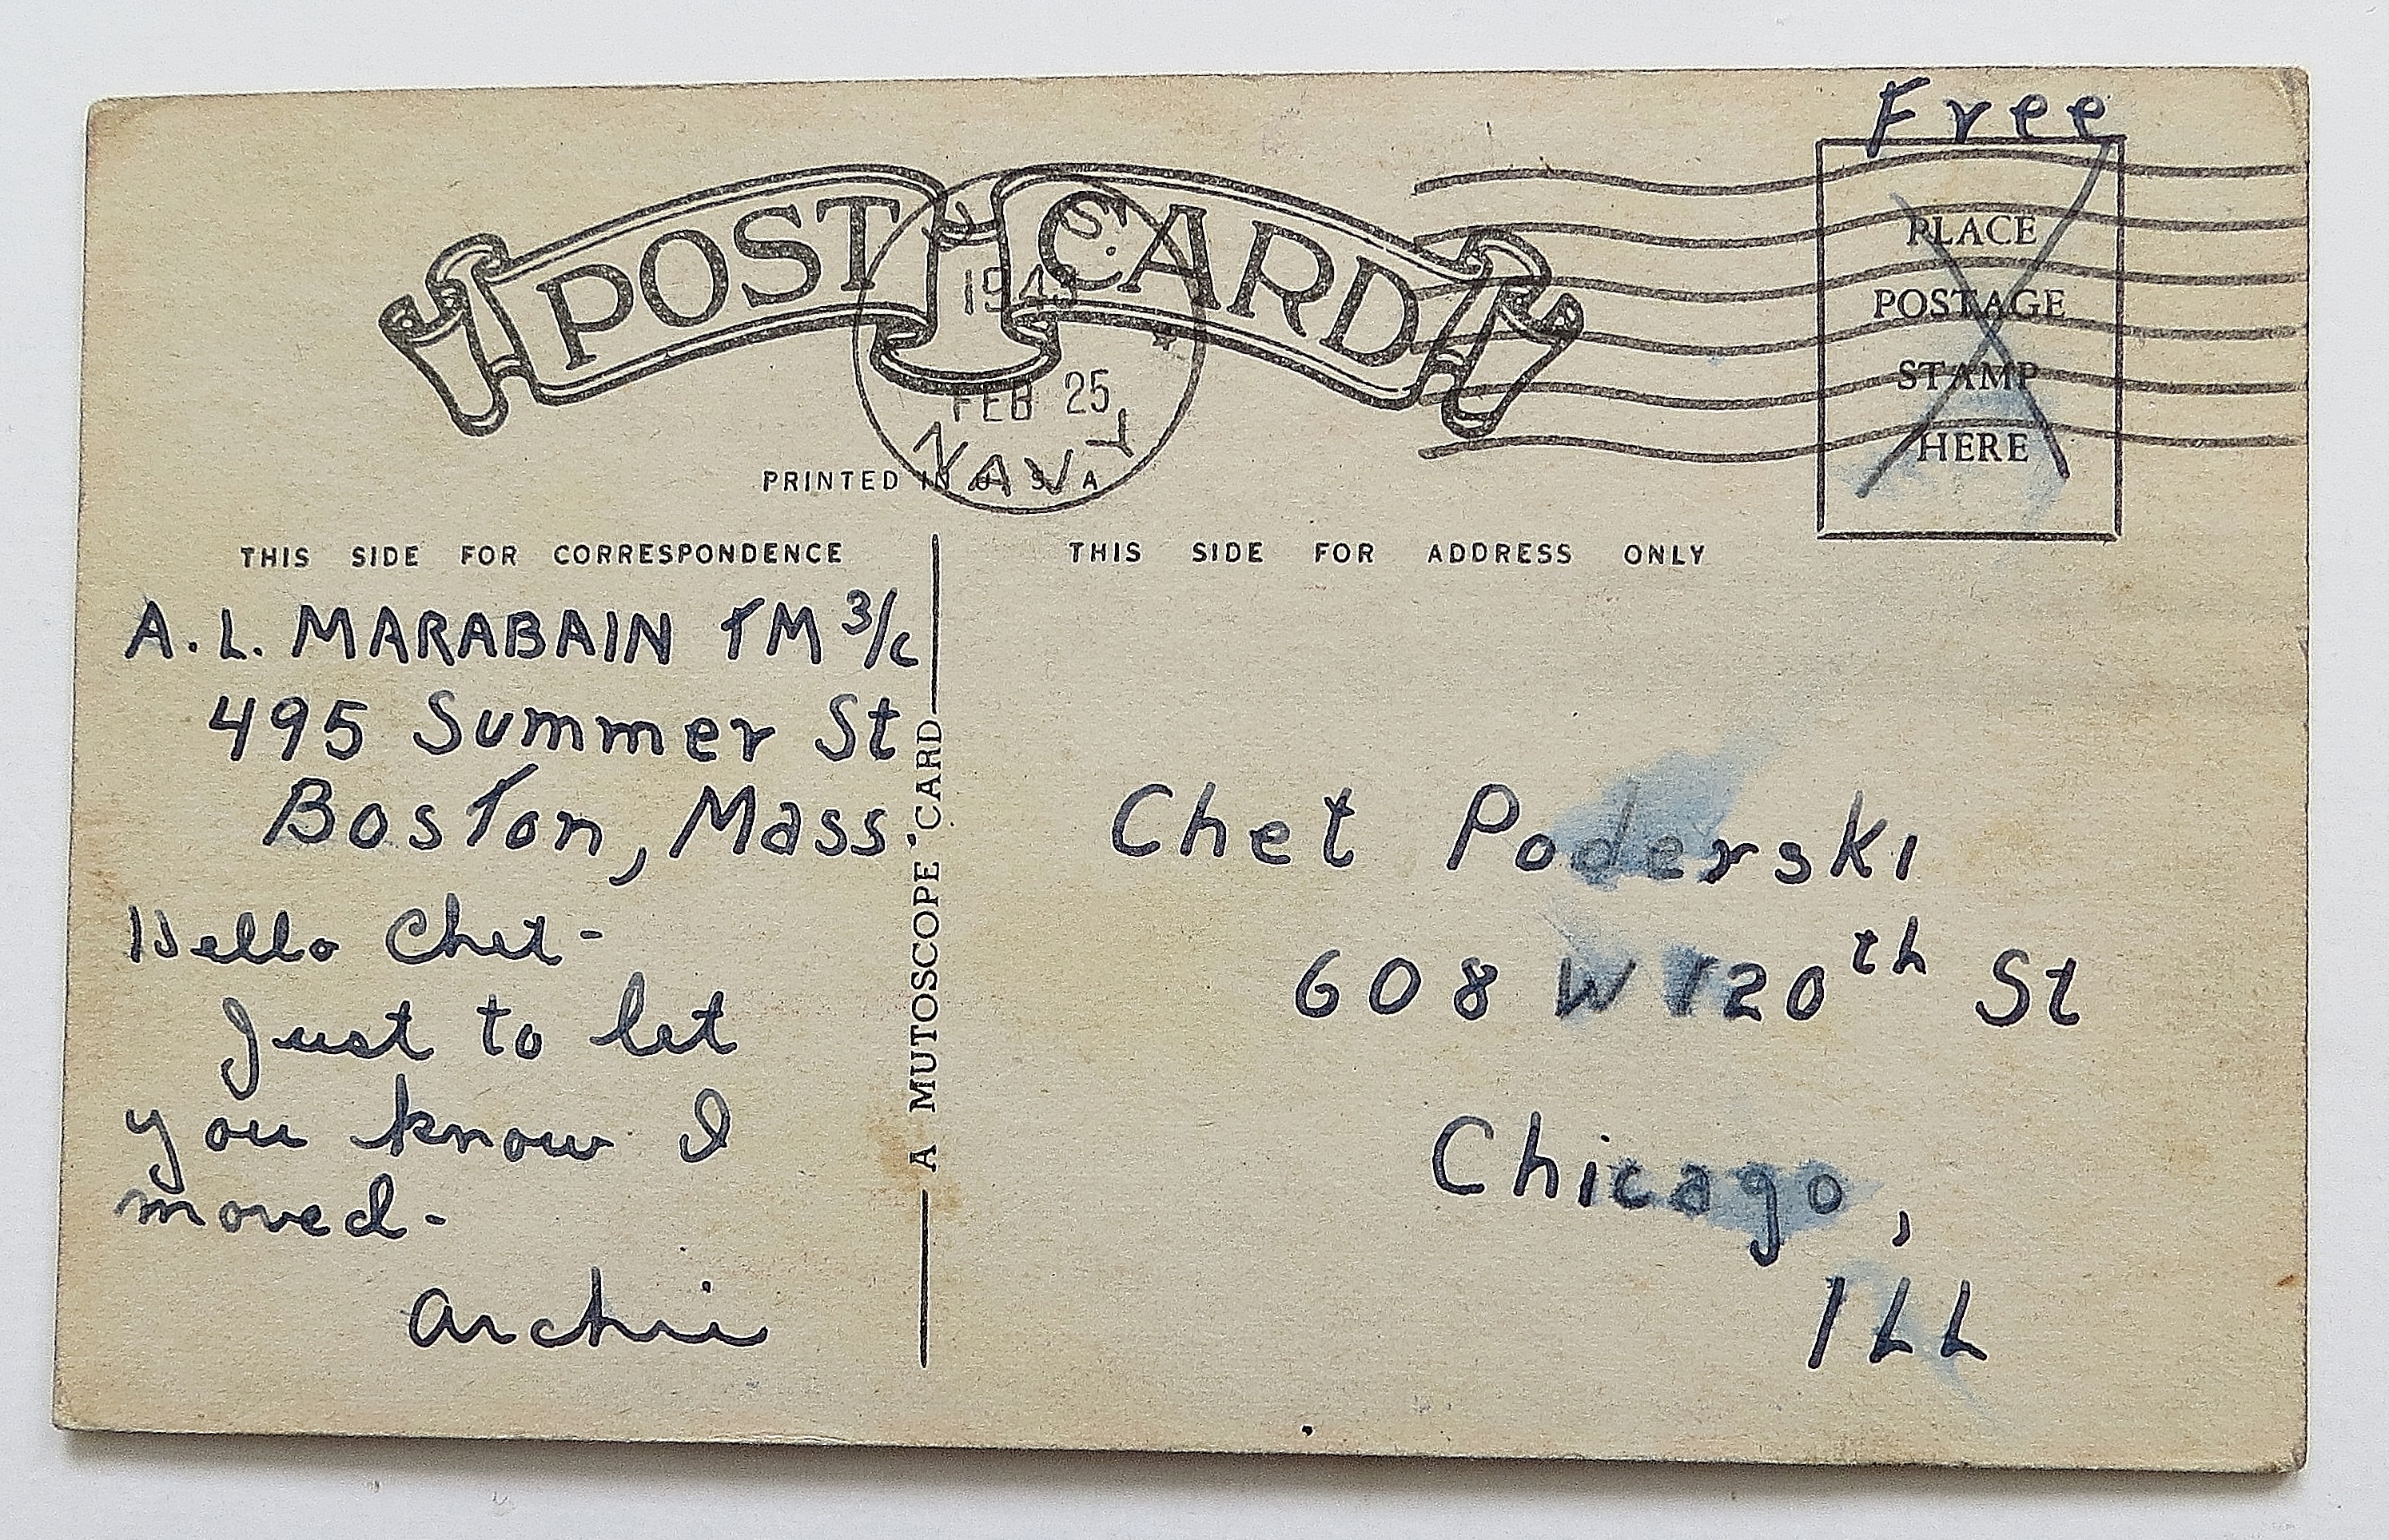 Free
POST CARD
PLACE
POSTAGE
STAMP
HERE
U. S.
FEB 25
NAVY
PRINTED IN U. S. A
THIS SIDE FOR CORRESPONDENCE
THIS SIDE FOR ADDRESS ONLY
A. L. MARABAIN TM 3/c
495 Summer St
Boston, Mass.
Hello Chet-
Just to let
you know I
moved-
Archie
A MUTOSCOPE CARD
Chet Poderski
608 W 120th St
Chicago,
ILL